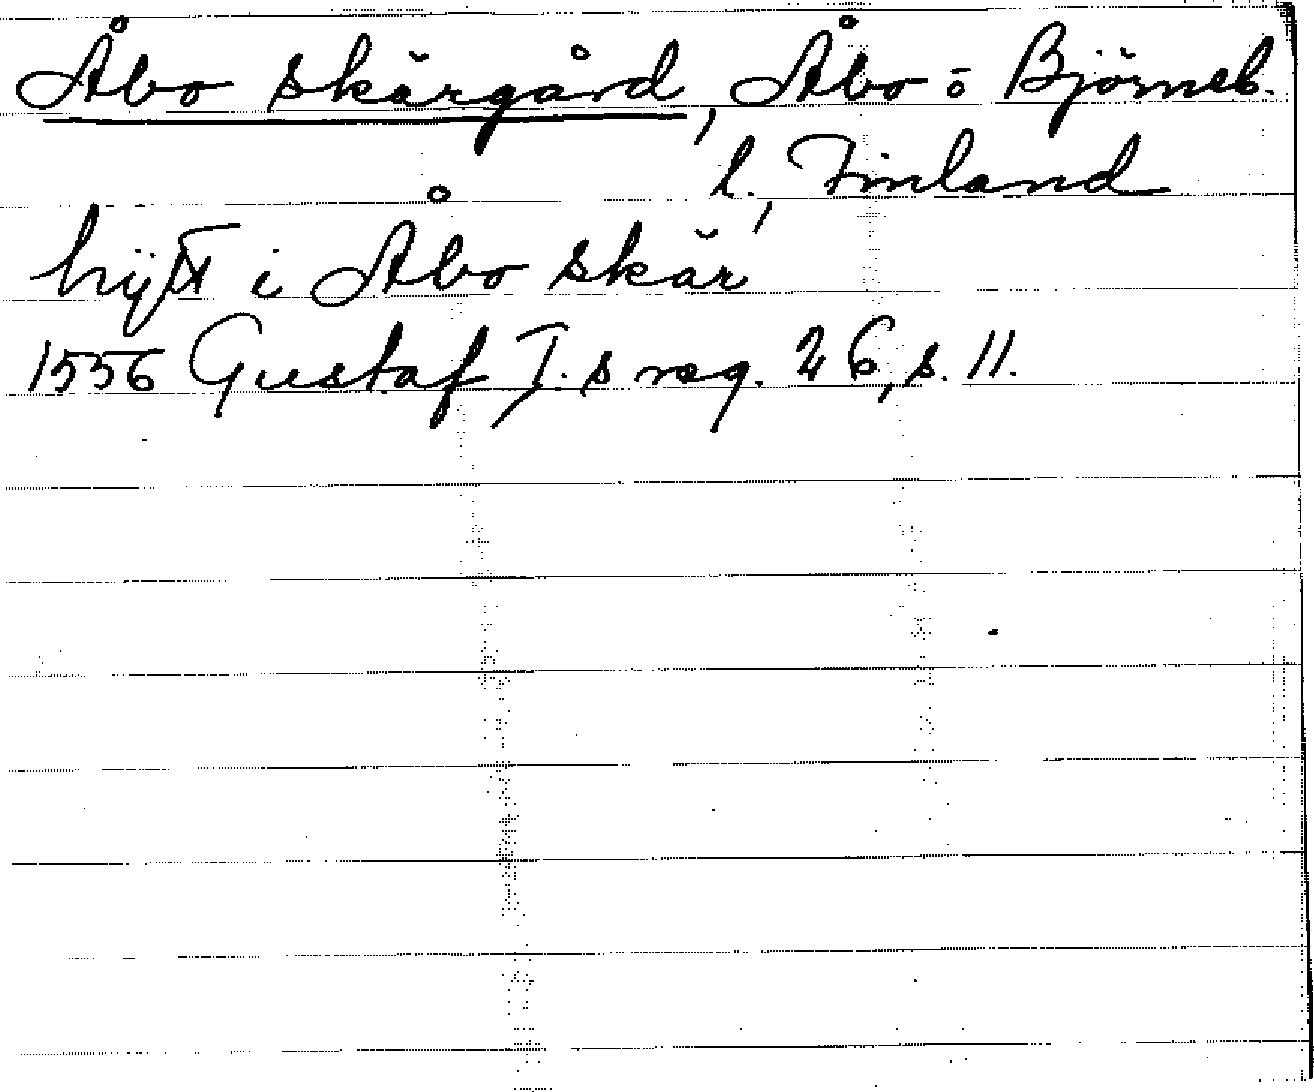 Åbo skärgård, Åbo o Björneb.
l., Finland
hijtt i Åbo skär
1556 Gustaf I.s reg. 26, s. 11.